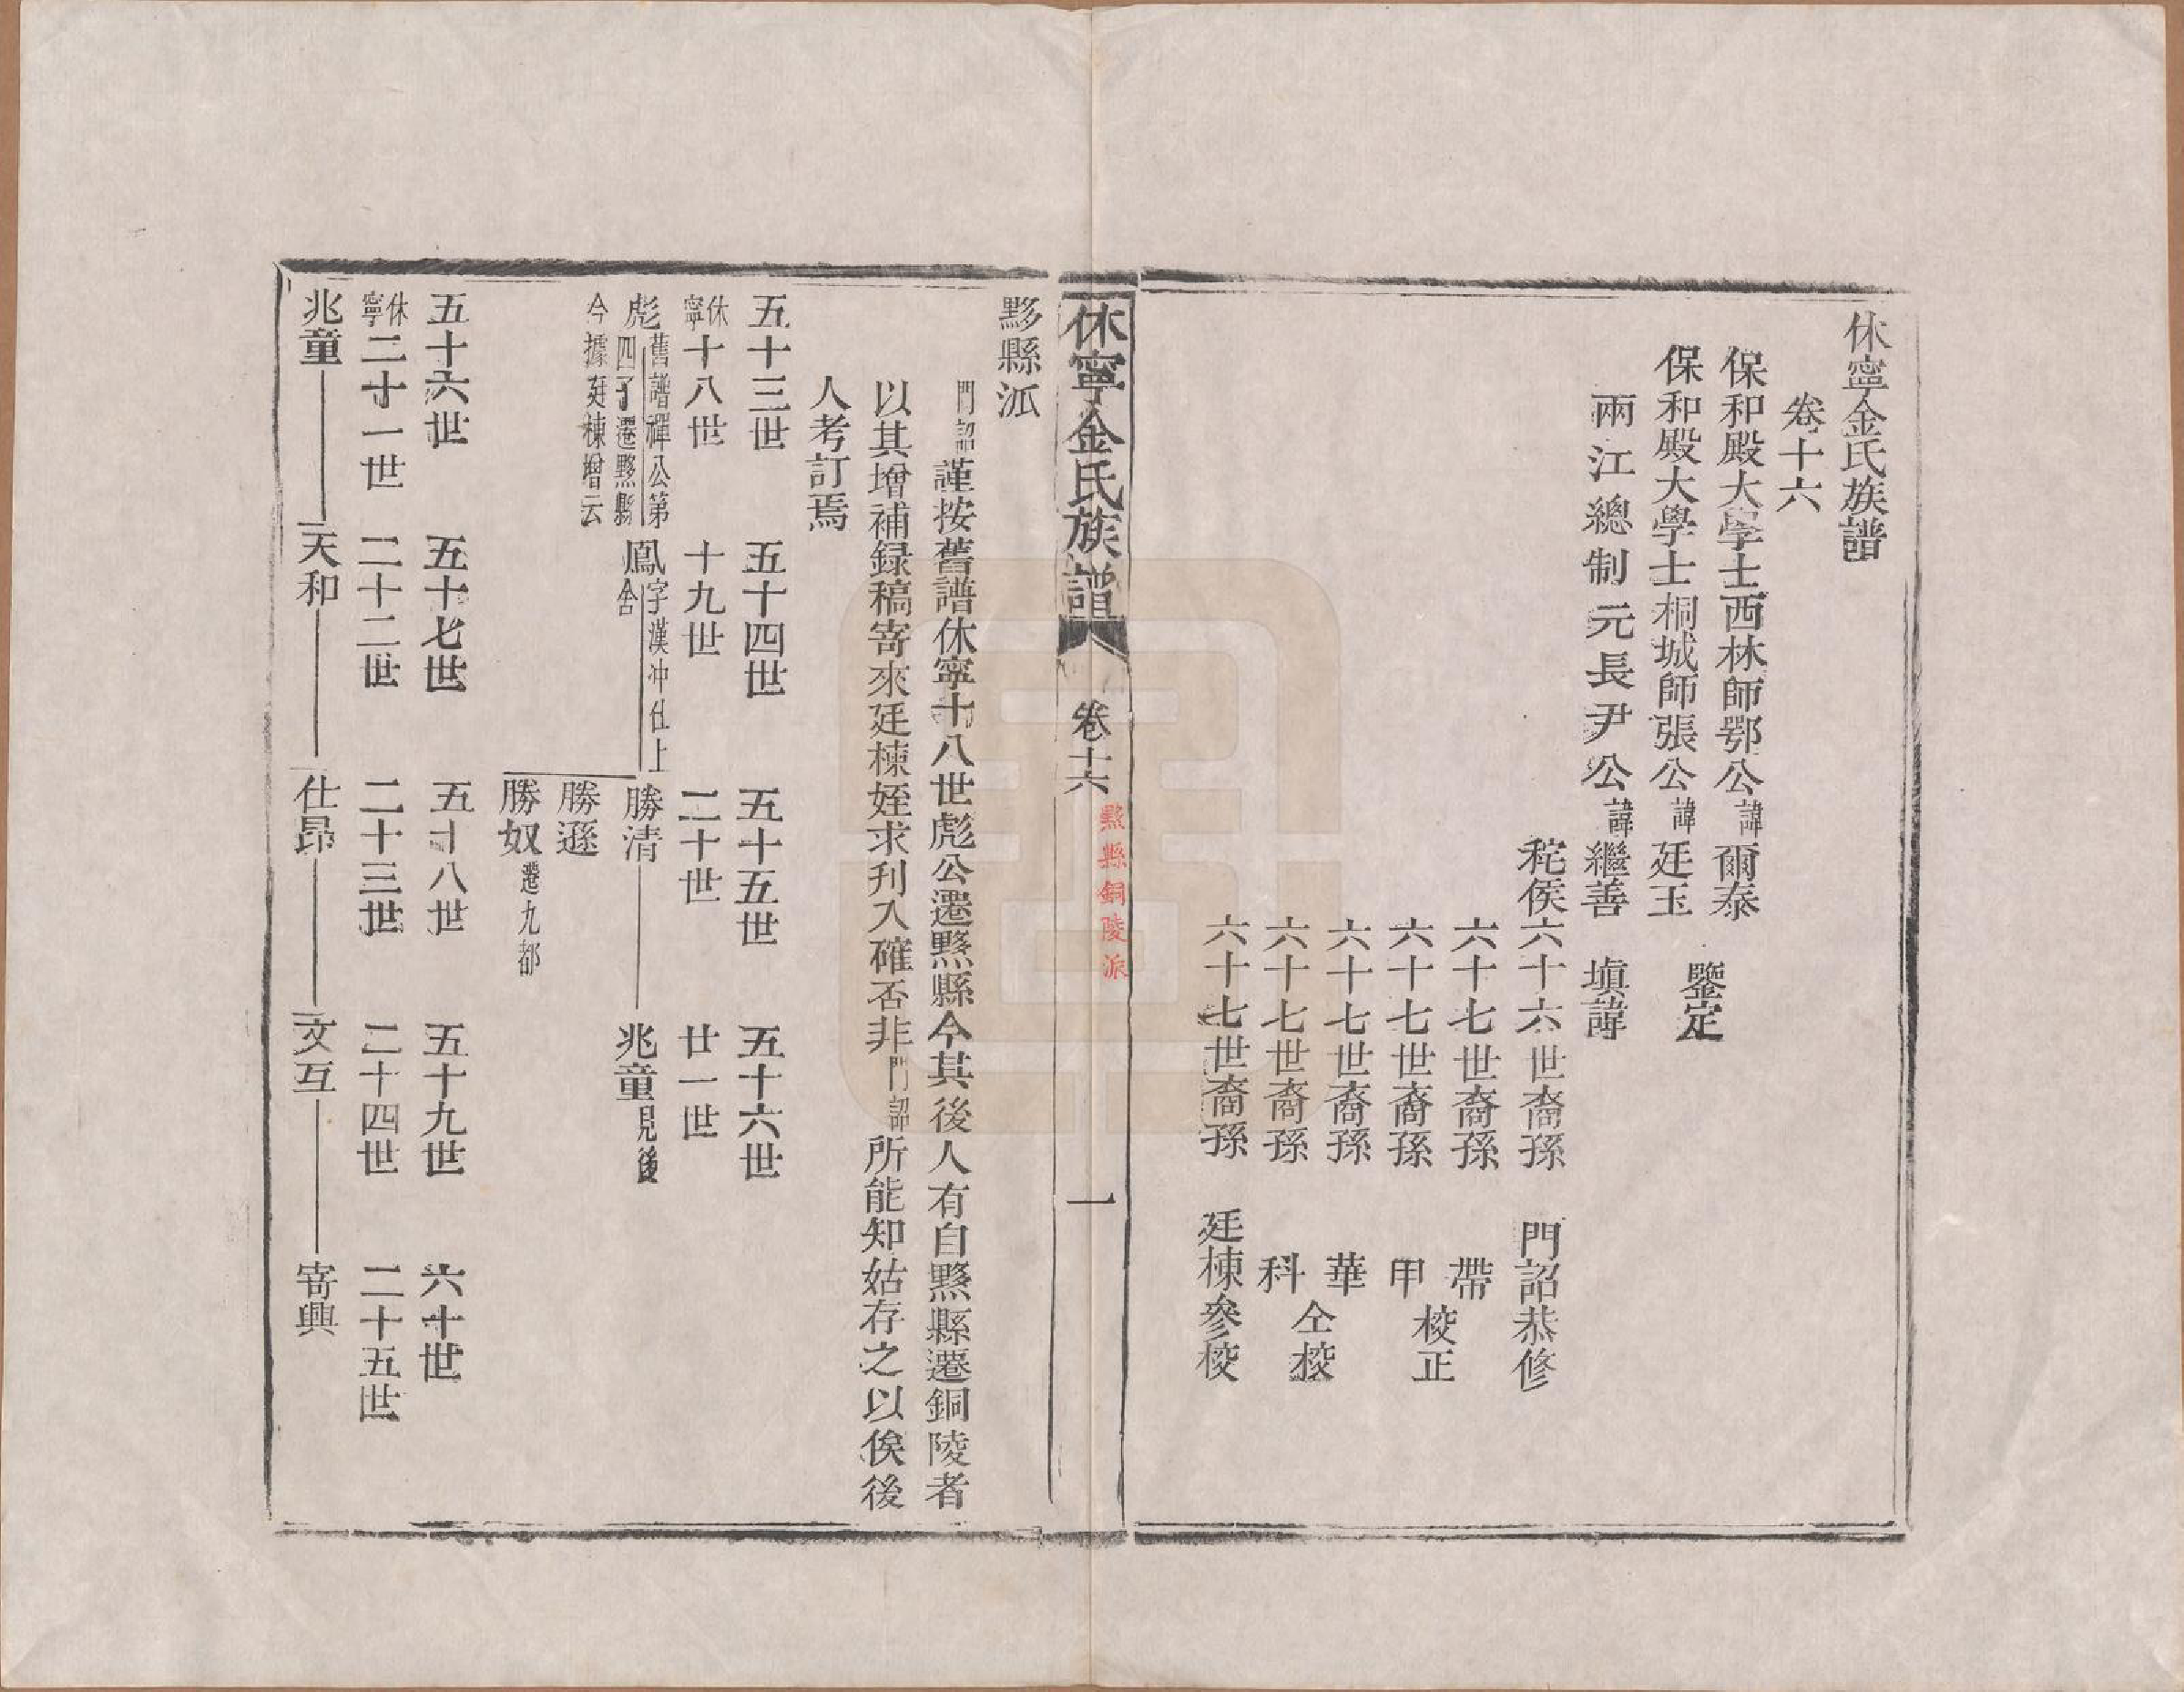 休寧金氏族譜
卷十六
保和殿大學士西林師鄂公諱爾泰
保和殿大學士桐城師張公諱廷玉
鑒定
兩江總制元長尹公諱繼善 填諱
秺侯六十六世裔孫 門詔恭修
六十七世裔孫 帶
六十七世裔孫 甲
校正
六十七世裔孫 華
六十七世裔孫 科
仝挍
六十七世裔孫 廷棟參校
休寧金氏族譜 卷十六 一
黟縣銅陵派
黟縣派
門詔謹按舊譜休寧十八世彪公遷黟縣今其後人有自黟縣遷銅陵者
以其增補録稿寄來廷棟姪求刋入確否非門詔所能知姑存之以俟後
人考訂焉
五十三世 五十四世 五十五世 五十六世
休寧十八世 十九世 二十世 廿一世
彪舊譜禪公第四子遷黟縣 鳳字漢冲仕上舍 勝清 兆童見後
今據廷棟增云 勝遜
勝奴遷九都
五十六世 五十七世 五十八世 五十九世 六十世
休寧二十一世 二十二世 二十三世 二十四世 二十五世
兆童 天和 仕昂 文互 寄興